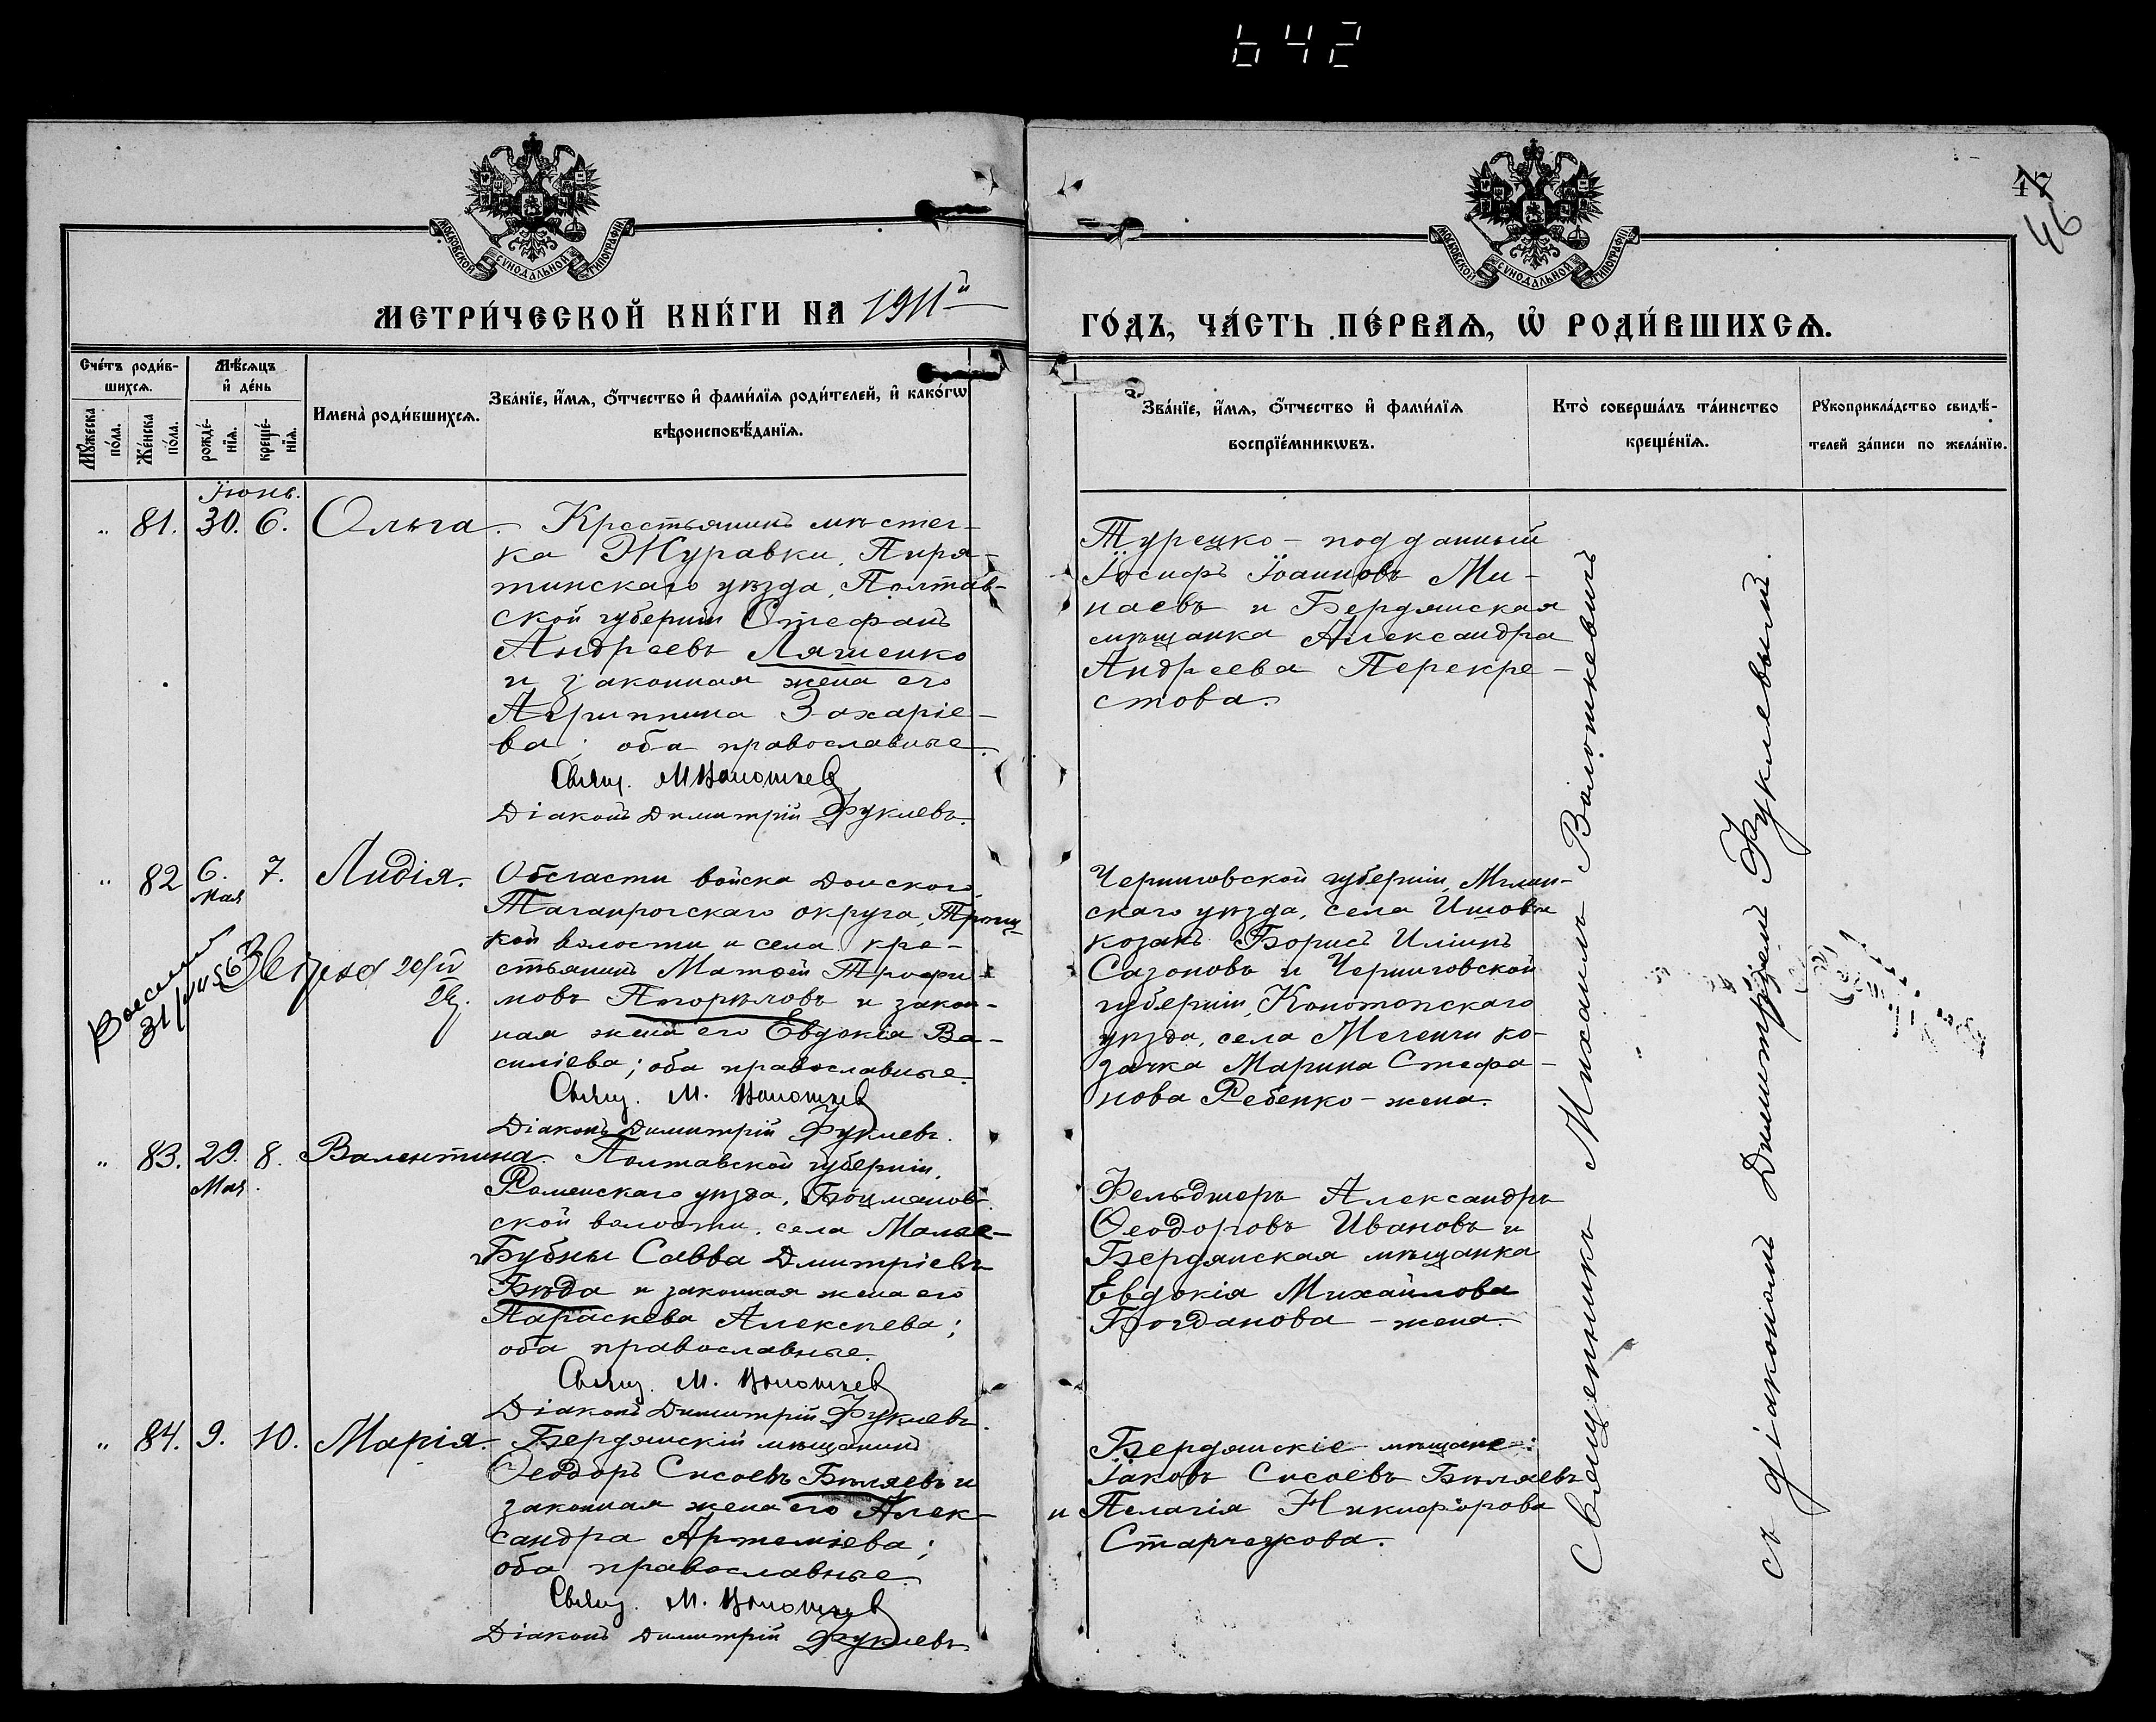 642
47
46
МОСКОВСКОЙ СѴНОДАЛЬНОЙ ТИПОГРАФІИ
МОСКОВСКОЙ СѴНОДАЛЬНОЙ ТИПОГРАФІИ
МЕТРИ́ЧЕСКОЙ КНИ́ГИ НА 1911й
ГО́ДЪ, ЧА́СТЬ ПЕ́РВАѦ, Ѡ РОДИ́ВШИХСѦ.
Сче́тъ роди́в-
шихсѧ.
Мꙋ́жеска по́ла.
Же́нска по́ла.
Мѣ́сѧцъ
и҆ де́нь
рожде́-
нїѧ.
креще́-
нїѧ.
И҆мена̀ роди́вшихсѧ.
Зва́нїе, и҆́мѧ, ѻ҆́тчество и҆ фами́лїѧ роди́телей, и҆ како́гѡ
вѣроисповѣ́данїѧ.
Зва́нїе, и҆́мѧ, ѻ҆́тчество и҆ фами́лїѧ
воспрїе́мникѡвъ.
Кто̀ соверша́лъ та́инство
креще́нїѧ.
Рꙋкоприкла́дство свидѣ́-
телей за́писи по жела́нїю.
Іюнь.
„ 81. 30. 6. Ольга.
Крестьянинъ мѣстеч-
ка Журавки, Пиря-
тинскаго уѣзда, Полтав-
ской губерніи Стефанъ
Андреевъ Ляшенко
и законная жена его
Агриппина Захаріе-
ва; оба православные.
Свящ. М Волошкев
Діаконъ Димитрій Фуклевъ.
Турецко-подданный
Іосифъ Іоанновъ Ми-
наевъ и Бердянская
мѣщанка Александра
Андреева Перекре-
стова.
„ 82 6. Мая 7. Лидія.
Области войска Донского,
Таганрогскаго округа, Троиц-
кой волости и села кре-
стьянинъ Матѳей Трофи-
мовъ Погорѣловъ и закон-
ная жена его Евдокія Ва-
силіева; оба православные.
Свящ. М. Волошкев
Діаконъ Димитрій Фуклевъ.
Черниговской губерніи, Мглин-
скаго уѣзда, села
козакъ Борисъ Иліинъ
Сазоновъ и Черниговской
губерніи, Конотопскаго
уѣзда, села ко-
зачка Марина Стефа-
нова Ребенко - жена.
„ 83. 29. Мая. 8. Валентина.
Полтавской губерніи,
Роменскаго уѣзда, Боцманов-
ской волости, села Малые-
Бубны Савва Дмитріевъ
Бѣда и законная жена его
Параскева Алексѣева;
оба православные.
Свящ. М. Волошкев
Діаконъ Димитрій Фуклевъ.
Фельдшеръ Александръ
Ѳеодоровъ Ивановъ и
Бердянская мѣщанка
Евдокія Михайлова
Богданова - жена.
„ 84. 9. 10. Марія.
Бердянскій мѣщанинъ
Ѳеодоръ Сисоевъ Бѣляевъ и
законная жена его Алек-
сандра Артеміева;
оба православные.
Свящ. М. Волошкев
Діаконъ Димитрій Фуклевъ.
Бердянскіе мѣщане:
Іаковъ Сисоевъ Бѣляевъ
и Пелагія Никифорова
Священникъ Михаилъ Волошкевичъ
съ діакономъ Димитріемъ Фуклевымъ.